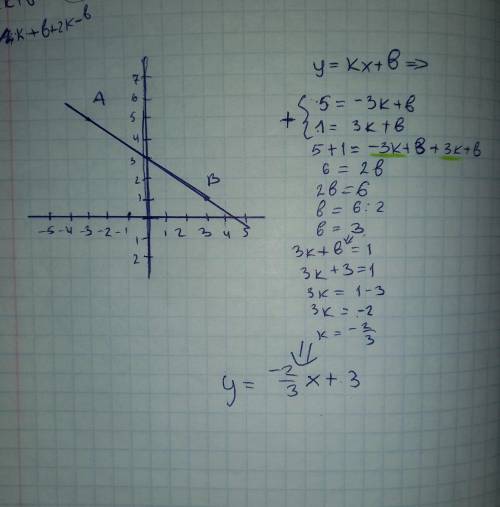 4k+в+2k-в
y = kx+в =>
+ { 5 = -3k+в
1 = 3k+в
5+1 = -3k+в+3k+в
6 = 2в
2в = 6
в = 6:2
в = 3
3k+в = 1
3k+3=1
3k = 1-3
3k = -2
k = -2/3
y = -2/3 x + 3
7
6
A
5
4
3
2
B
1
-5 -4 -3 -2 -1 1 2 3 4 5
1
2